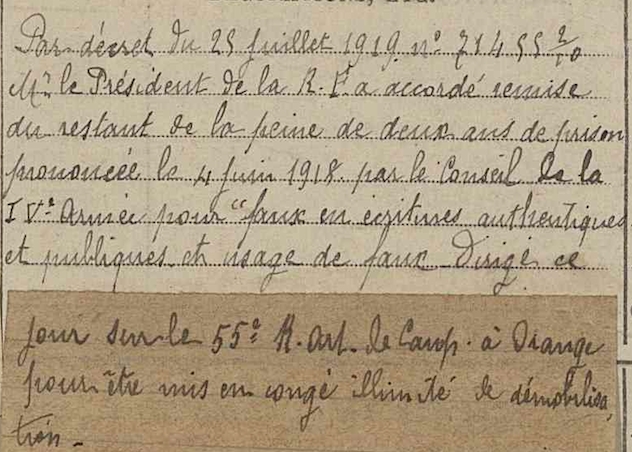 Par décret du 25 juillet 1919. n° 71455 2/10
Mr. le Président de la R. F. a accordé remise
du restant de la peine de deux ans de prison
prononcée le 4 juin 1918 par le Conseil de la
IVe Armée pour "faux en écritures authentiques
et publiques et usage de faux. Dirigé ce
jour sur le 55e R. Art. de Camp. à Orange
pour être mis en congé illimité de démobilisa
tion.-